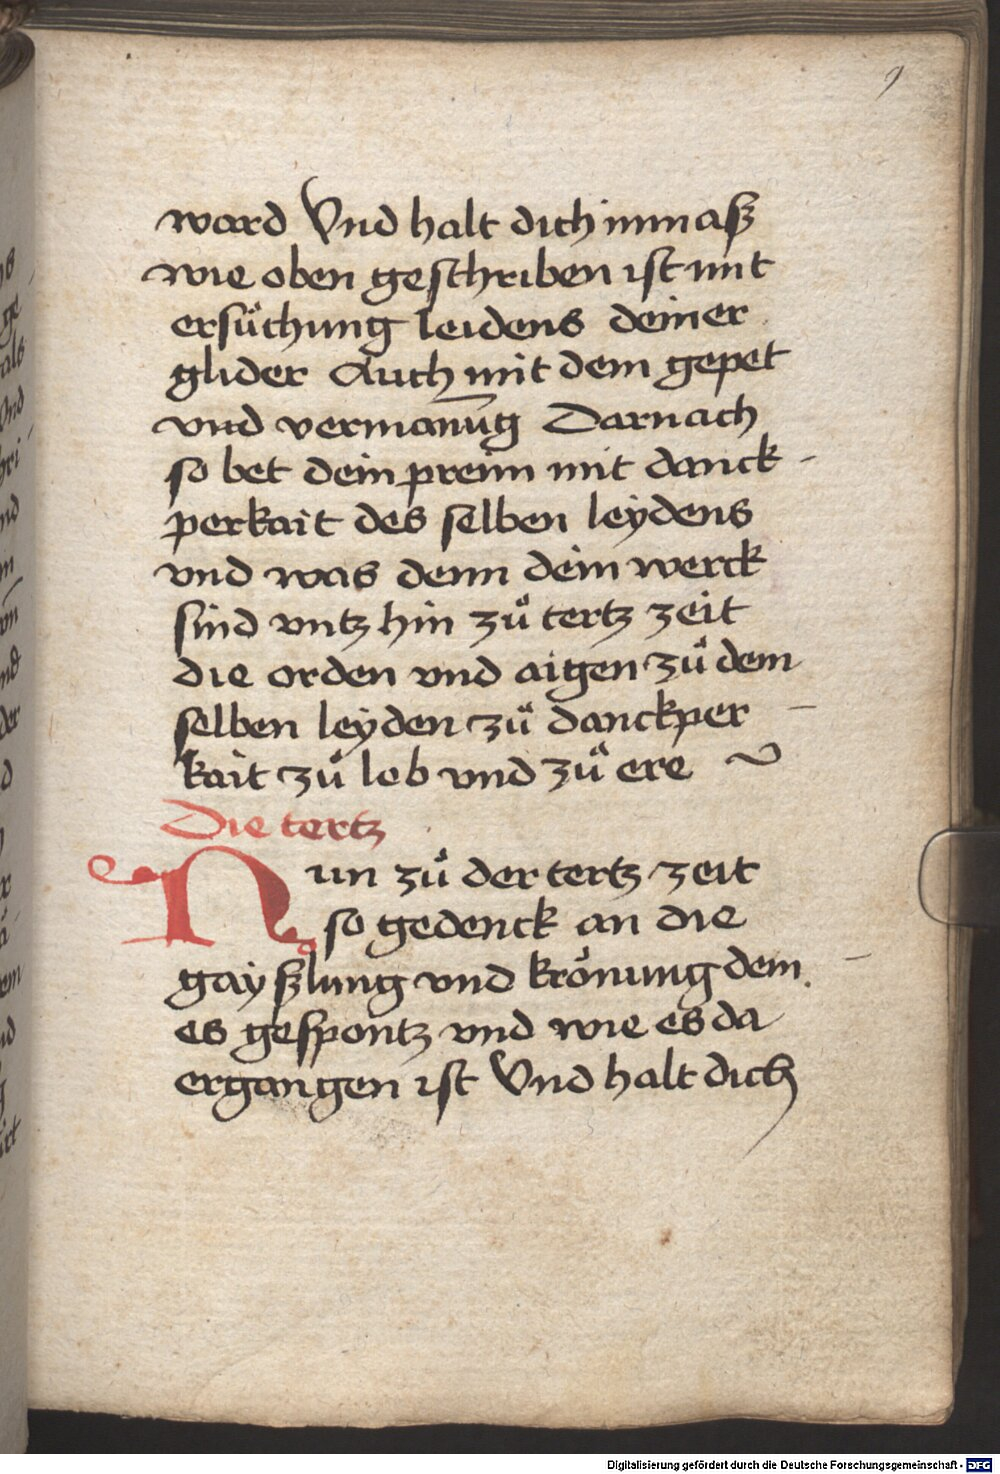 9
ward Vnd halt dich inmasz
wie oben geschriben ist mit
ersuͦchung leidens deiner
glider Auch mit dem gepet
vnd vermanūg Darnach
so bet dein preim mit danck -
perkait des selben leydens
vnd was denn dein werck
sind vntz hin zuͦ tertz zeit
die orden vnd aigen zuͦ dem
selben leyden zuͦ danckper -
kait zuͦ lob vnd zuͦ ere
Die tertz
Nun zuͦ der tertz zeit
so gedenck an die
gayszlung vnd krönung dein -
es gespontz vnd wie es da
ergangen ist Vnd halt dich
Digitalisierung gefördert durch die Deutsche Forschungsgemeinschaft - DFG